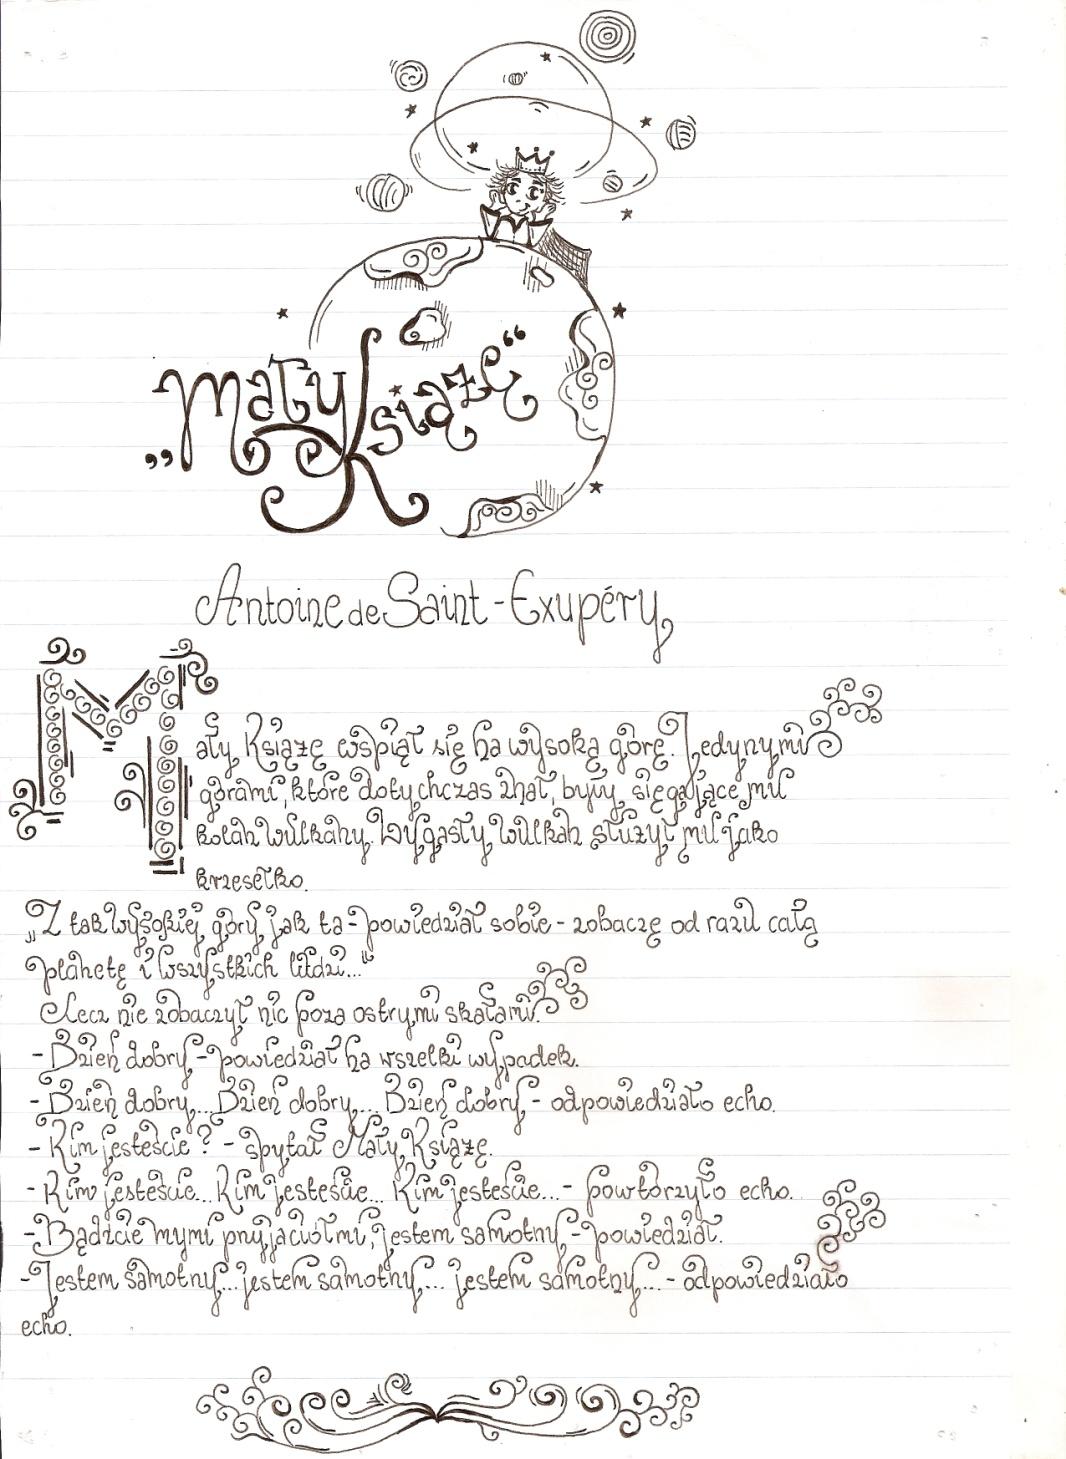 „Mały Książę“
Antoine de Saint-Exupéry
Mały Książę wspiął się na wysoką górę. Jedynymi
górami, które dotychczas znał, były sięgające mu
kolan wulkany. Wygasły wulkan służył mu jako
krzesełko.
„Z tak wysokiej góry jak ta - powiedział sobie - zobaczę od razu całą
planetę i wszystkich ludzi..."
Lecz nie zobaczył nic poza ostrymi skałami.
- Dzień dobry - powiedział na wszelki wypadek.
- Dzień dobry... Dzień dobry... Dzień dobry - odpowiedziało echo.
- Kim jesteście? - spytał Mały Książę.
- Kim jesteście... Kim jesteście... Kim jesteście... - powtórzyło echo.
- Bądźcie mymi przyjaciółmi, jestem samotny - powiedział.
- Jestem samotny... jestem samotny... jestem samotny... - odpowiedziało
echo.